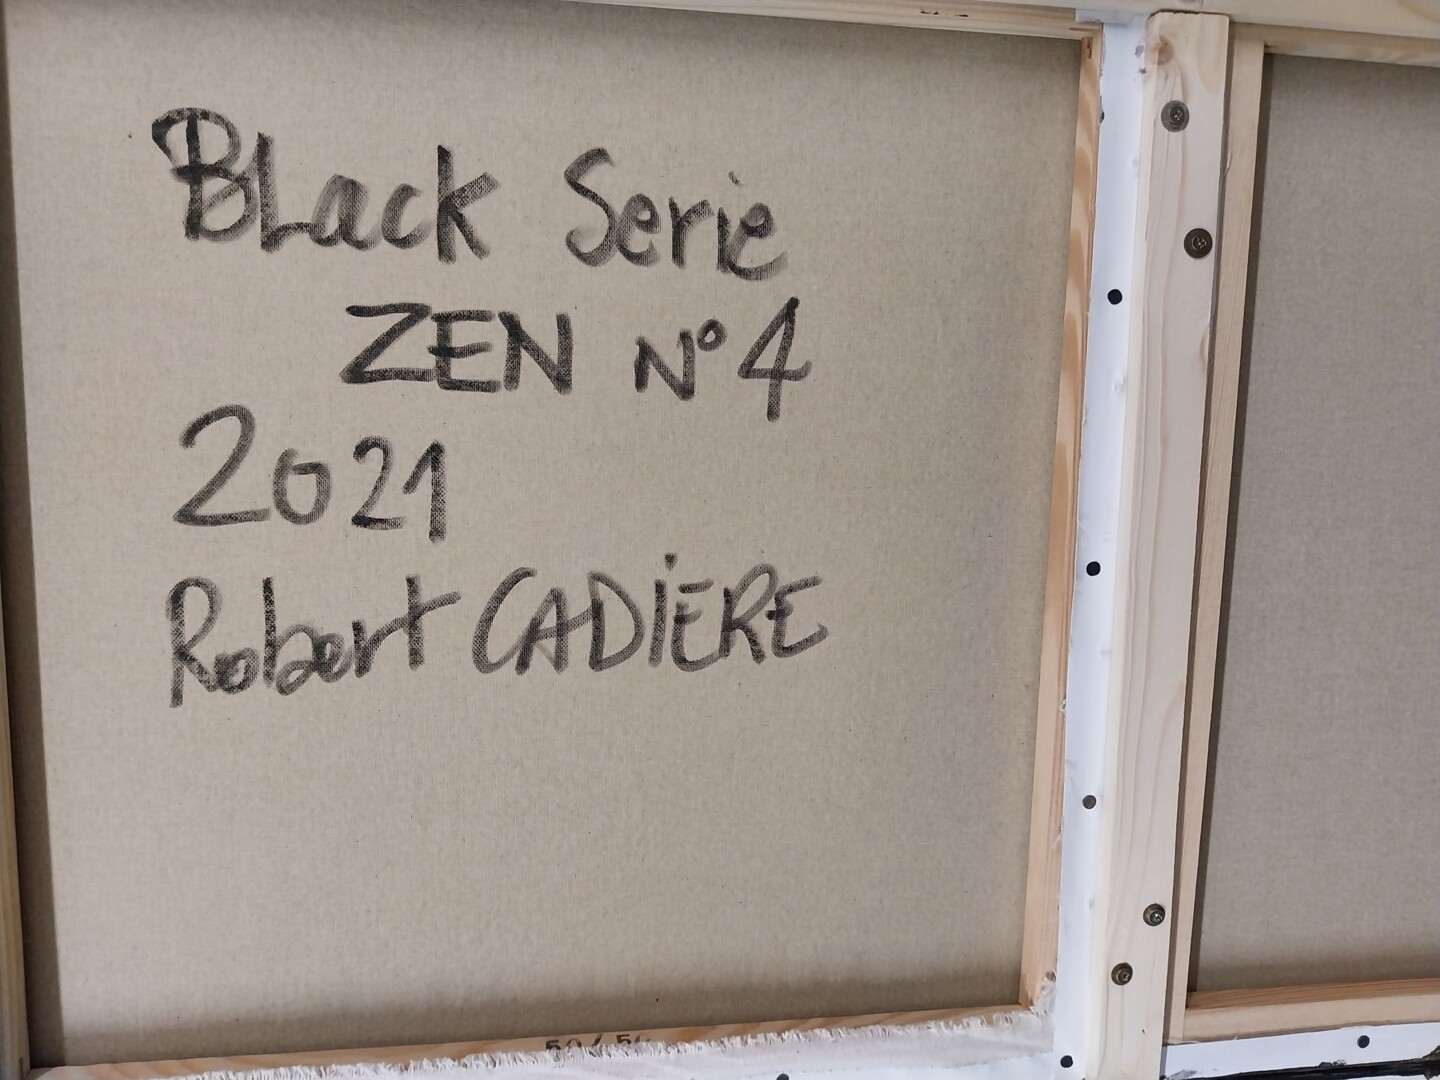 BLack Serie
ZEN N° 4
2021
Robert CADIERE